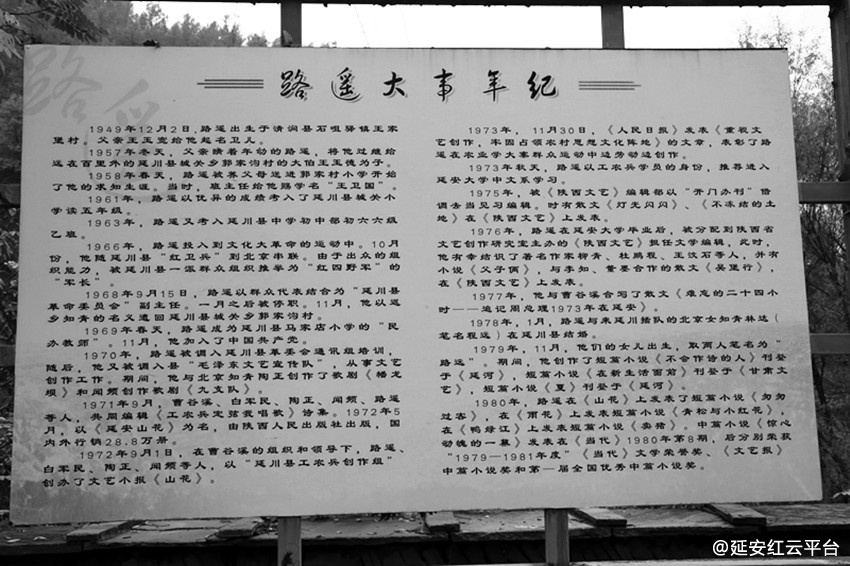 路遥大事年纪
1949年12月2日,路遥出生于清涧县石咀驿镇王家
堡村。父亲王玉宽给他起名卫儿。
1957年冬天,父亲领着年幼的路遥,将他过继给
远在百里外的延川县城关乡郭家沟村的大伯王玉德为子。
1958年春天,路遥被养父母送进郭家村小学开始
了他的求知生涯。当时,班主任给他赐学名“王卫国”。
1961年,路遥以优异的成绩考入了延川县城关小
学读五年级。
1963年,路遥又考入延川县中学初中部初六六级
乙班。
1966年,路遥投入到文化大革命的运动中。10月
份,他随延川县“红卫兵”到北京串联。由于出众的组
织能力,被延川县一派群众组织推举为“红四野军”的
“军长”。
1968年9月15日,路遥以群众代表结合为“延川县
革命委员会”副主任。一月之后被停职。11月,他以返
乡知青的名义遣回延川县城关乡郭家沟村。
1969年春天,路遥成为延川县马家店小学的“民
办教师”。11月,他加入了中国共产党。
1970年,路遥被调入延川县革委会通讯组培训,
随后,他又被调入县“毛泽东文艺宣传队”,从事文艺
创作工作。期间,他与北京知青陶正创作了歌剧《蟠龙
坝》和闻频创作歌剧《九支队》。
1971年9月,曹谷溪、白军民、陶正、闻频、路遥
等人,共同编辑《工农兵定弦我唱歌》诗集。1972年5
月,以《延安山花》为名,由陕西人民出版社出版,国
内外行销28.8万册。
1972年9月1日,在曹谷溪的组织和领导下,路遥、
白军民、陶正、闻频等人,以“延川县工农兵创作组”
创办了文艺小报《山花》。
1973年,11月30日,《人民日报》发表《重视文
艺创作,牢固占领农村思想文化阵地》的文章,表彰了路
遥在农业学大寨群众运动中边劳动边创作。
1973年秋天,路遥以工农兵学员的身份,推荐进入
延安大学中文系学习。
1975年,被《陕西文艺》编辑部以“开门办刊”借
调去当见习编辑。时有散文《灯光闪闪》、《不冻结的土
地》在《陕西文艺》上发表。
1976年,路遥在延安大学毕业后,被分配到陕西省
文艺创作研究室主办的《陕西文艺》担任文学编辑,此时,
他有幸结识了著名作家柳青、杜鹏程、王汶石等人,并有
小说《父子俩》,与李知、董墨合作的散文《吴堡行》,
在《陕西文艺》上发表。
1977年,他与曹谷溪合写了散文《难忘的二十四小
时——追记周总理1973年在延安》。
1978年,1月,路遥与来延川插队的北京女知青林达(
笔名程远)在延川县结婚。
1979年,11月,他们的女儿出生,取两人笔名为“
路远”。期间,他创作了短篇小说《不会作诗的人》刊登
于《延河》,短篇小说《在新生活面前》刊登于《甘肃文
艺》,短篇小说《夏》刊登于《延河》。
1980年,路遥在《山花》上发表了短篇小说《匆匆
过客》,在《雨花》上发表短篇小说《青松与小红花》,
在《鸭绿江》上发表短篇小说《卖猪》。中篇小说《惊心
动魄的一幕》发表在《当代》1980年第8期,后分别荣获
“1979—1981年度”《当代》文学荣誉奖、《文艺报》
中篇小说奖和第一届全国优秀中篇小说奖。
@延安红云平台